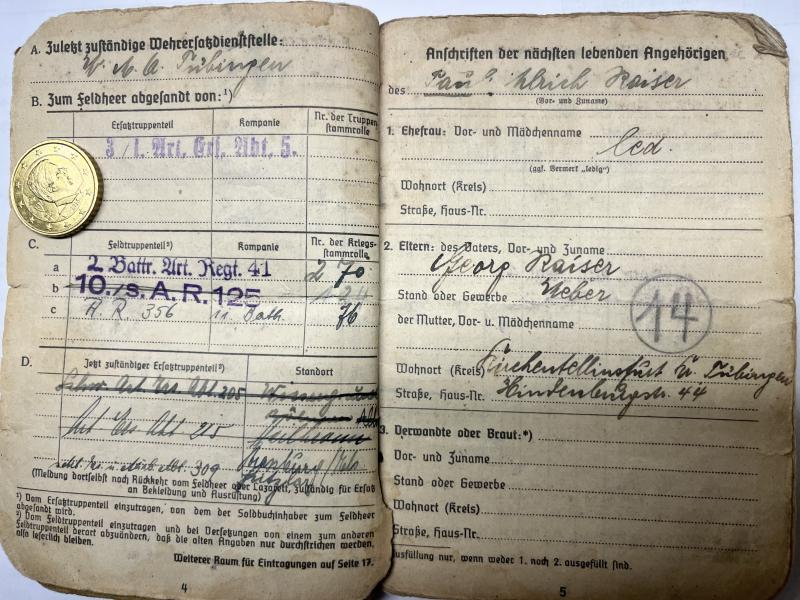 A. Zuletzt zuständige Wehrersatzdienststelle:
W. M. A. Tübingen
B. Zum Feldheer abgesandt von:¹)
Ersatztruppenteil Kompanie Nr. der Truppenstammrolle
3/1. Art. Ers. Abt. 5.
C. Feldtruppenteil²) Kompanie Nr. der Kriegsstammrolle
a 2. Battr. Art. Regt. 41 2 70
b 10./s. A. R. 125
c A. R. 356 76
D. Jetzt zuständiger Ersatztruppenteil²) Standort
Art Ers Abt 205
Art Ers Abt 215 Heilbronn
309
(Meldung dortselbst nach Rückkehr vom Feldheer oder Lazarett, zuständig für Ersatz
an Bekleidung und Ausrüstung)
¹) Vom Ersatztruppenteil einzutragen, von dem der Soldbuchinhaber zum Feldheer
abgesandt wird.
²) Vom Feldtruppenteil einzutragen und bei Versetzungen von einem zum anderen
Feldtruppenteil derart abzuändern, daß die alten Angaben nur durchstrichen werden,
also leserlich bleiben.
Weiterer Raum für Eintragungen auf Seite 17.
4
Anschriften der nächsten lebenden Angehörigen
des Paul Ulrich Kaiser
(Vor- und Zuname)
1. Ehefrau: Vor- und Mädchenname
led.
(ggf. Vermerk „ledig")
Wohnort (Kreis)
Straße, Haus-Nr.
2. Eltern: des Vaters, Vor- und Zuname
Georg Kaiser
Stand oder Gewerbe Weber
14
der Mutter, Vor- u. Mädchenname
Wohnort (Kreis) Kirchentellinsfurt Kr. Tübingen
Straße, Haus-Nr. Hindenburgstr. 44
3. Verwandte oder Braut:*)
Vor- und Zuname
Stand oder Gewerbe
Wohnort (Kreis)
Straße, Haus-Nr.
Ausfüllung nur, wenn weder 1. noch 2. ausgefüllt sind.
5